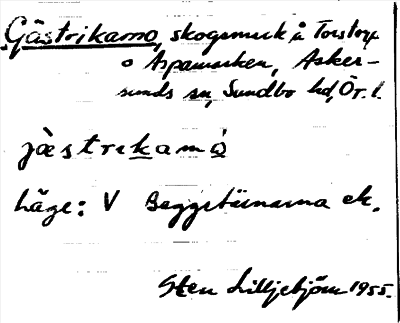 Gästrikamo, skogsmark å Torstorp
o Aspamarken, Asker-
sunds sn, Sundbo hd, Ör. l.
jästrikamό
Läge: V Baggetäinarna ek.
Sten Lilljebjörn 1955.